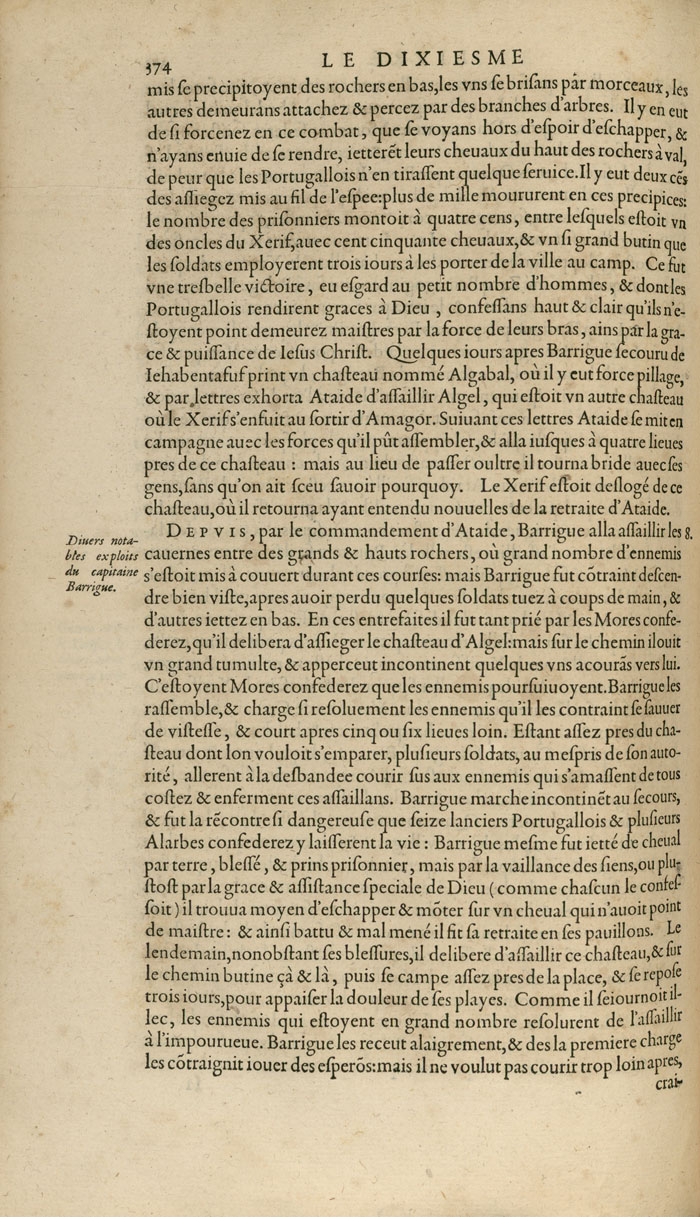 374
LE DIXIESME
mis ſe precipitoyent des rochers en bas,les vns ſe briſans par morceaux, les
autres demeurans attachez & percez par des branches d'arbres. Il y en eut
de ſi forcenez en ce combat, que ſe voyans hors d'eſpoir d'eſchapper, &
n'ayans enuie de ſe rendre, ietterẽt leurs cheuaux du haut des rochers à val,
de peur que les Portugallois n'en tiraſſent quelque ſeruice.Il y eut deux cẽs
des aſſiegez mis au fil de l'eſpee:plus de mille moururent en ces precipices:
le nombre des priſonniers montoit à quatre cens, entre leſquels eſtoit vn
des oncles du Xerif,auec cent cinquante cheuaux,& vn ſi grand butin que
les ſoldats employerent trois iours à les porter de la ville au camp. Ce fut
vne treſbelle victoire, eu eſgard au petit nombre d'hommes, & dont les
Portugallois rendirent graces à Dieu , confeſſans haut & clair qu'ils n'e-
ſtoyent point demeurez maiſtres par la force de leurs bras, ains par la gra-
ce & puiſſance de Ieſus Chriſt. Quelques iours apres Barrigue ſecouru de
Iehabentafuf print vn chaſteau nommé Algabal, où il y eut force pillage,
& par lettres exhorta Ataide d'aſſaillir Algel, qui eſtoit vn autre chaſteau
où le Xerif s'enfuit au ſortir d'Amagor. Suiuant ces lettres Ataide ſe mit en
campagne auec les forces qu'il pût aſſembler,& alla iuſques à quatre lieues
pres de ce chaſteau : mais au lieu de paſſer oultre il tourna bride auec ſes
gens,ſans qu'on ait ſceu ſauoir pourquoy. Le Xerif eſtoit deſlogé de ce
chaſteau,où il retourna ayant entendu nouuelles de la retraite d'Ataide.
DEPVIS, par le commandement d'Ataide, Barrigue alla aſſaillir les 8.
Diuers nota-
bles exploits
du capitaine
Barrigue.
cauernes entre des grands & hauts rochers, où grand nombre d'ennemis
s'eſtoit mis à couuert durant ces courſes: mais Barrigue fut cõtraint deſcen-
dre bien viſte,apres auoir perdu quelques ſoldats tuez à coups de main, &
d'autres iettez en bas. En ces entrefaites il fut tant prié par les Mores confe-
derez,qu'il delibera d'aſſieger le chaſteau d'Algel:mais ſur le chemin il ouit
vn grand tumulte, & apperceut incontinent quelques vns acourãs vers lui.
C'eſtoyent Mores confederez que les ennemis pourſuiuoyent.Barrigue les
raſſemble,& charge ſi reſoluement les ennemis qu'il les contraint ſe ſauuer
de viſteſſe, & court apres cinq ou ſix lieues loin. Eſtant aſſez pres du cha-
ſteau dont lon vouloit s'emparer, pluſieurs ſoldats, au meſpris de ſon auto-
rité, allerent à la deſbandee courir ſus aux ennemis qui s'amaſſent de tous
coſtez & enferment ces aſſaillans. Barrigue marche incontinẽt au ſecours,
& fut la rẽcontre ſi dangereuſe que ſeize lanciers Portugallois & pluſieurs
Alarbes confederez y laiſſerent la vie : Barrigue meſme fut ietté de cheual
par terre, bleſſé, & prins priſonnier, mais par la vaillance des ſiens,ou plu-
ſtoſt par la grace & aſſiſtance ſpeciale de Dieu (comme chaſcun le confeſ-
ſoit) il trouua moyen d'eſchapper & mõter ſur vn cheual qui n'auoit point
de maiſtre: & ainſi battu & mal mené il fit ſa retraite en ſes pauillons. Le
lendemain,nonobſtant ſes bleſſures,il delibere d'aſſaillir ce chaſteau,& ſur
le chemin butine çà & là, puis ſe campe aſſez pres de la place, & ſe repoſe
trois iours,pour appaiſer la douleur de ſes playes. Comme il ſeiournoit il-
lec, les ennemis qui eſtoyent en grand nombre reſolurent de l'aſſaillir
à l'impourueue. Barrigue les receut alaigrement,& des la premiere charge
les cõtraignit iouer des eſperõs:mais il ne voulut pas courir trop loin apres,
crai-